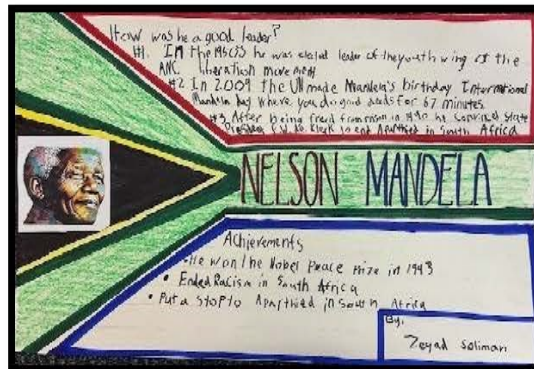 How was he a good leader?
#1. In the 1950s he was elected leader of the youth wing of the
ANC liberation movement
#2 In 2009 the UN made Mandela's birthday International
Mandela Day where you do good deeds for 67 minutes
#3 After being freed from prison in 1990 he convinced State
President F.W. de Klerk to end Aparthied in South Africa
NELSON MANDELA
Achievements
• He won the Nobel Peace Prize in 1993
• Ended Racism in South Africa
• Put a stop to Aparthied in South Africa
By:
Zeyad Soliman